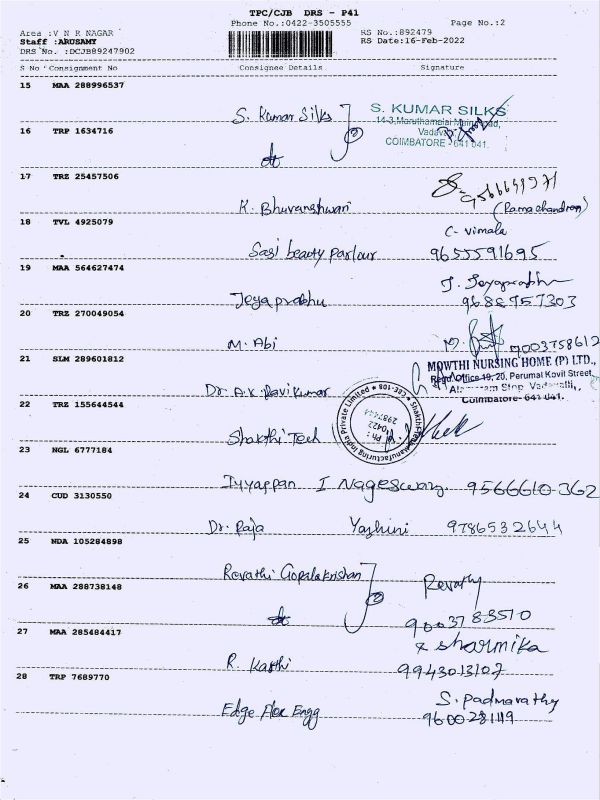 TPC/CJB DRS - P41
Phone No.:0422-3505555 Page No.:2
Area :V N R NAGAR RS No.:892479
Staff :ARUSAMY RS Date:16-Feb-2022
DRS No. :DCJB89247902
S No Consignment No Consignee Details Signature
15 MAA 288996537
S. Kumar Silks S. KUMAR SILKS
14-3, Maruthamalai Main Road,
16 TRP 1634716 Vadavalli
COIMBATORE - 641 041.
do
17 TRZ 25457506
K. Bhuvaneshwari (Ramachandran)
18 TVL 4925079 C. Vimala
Sasi beauty parlour 9655591695
19 MAA 564627474 J. Jeyaprabhu
Jeya prabhu 9688957303
20 TRZ 270049054
M. Abi 7003758612
21 SLM 289601812 MOWTHI NURSING HOME (P) LTD.,
Regd. Office 19, 20, Perumal Kovil Street,
Dr. A.K. Ravi Kumar Stop, Vadavalli,
22 TRZ 155644544 Coimbatore- 641 041.
Shakthi Tech Shakthi Tech Manufacturing India Private Limited ★ CBE-108 ★
Ph : 0422 2987444
23 NGL 6777184
Iyyappan I Nageswary 9566610362
24 CUD 3130550
Dr. Raja Yazhini 9786532644
25 NDA 105284898
Revathi Gopalakrishnan Revathy
26 MAA 288738148
do 9003783510
27 MAA 285484417 x Sharmika
R. Karthi 9943013107
28 TRP 7689770 S. Padmavathy
Edge Flex Engg 9600281119